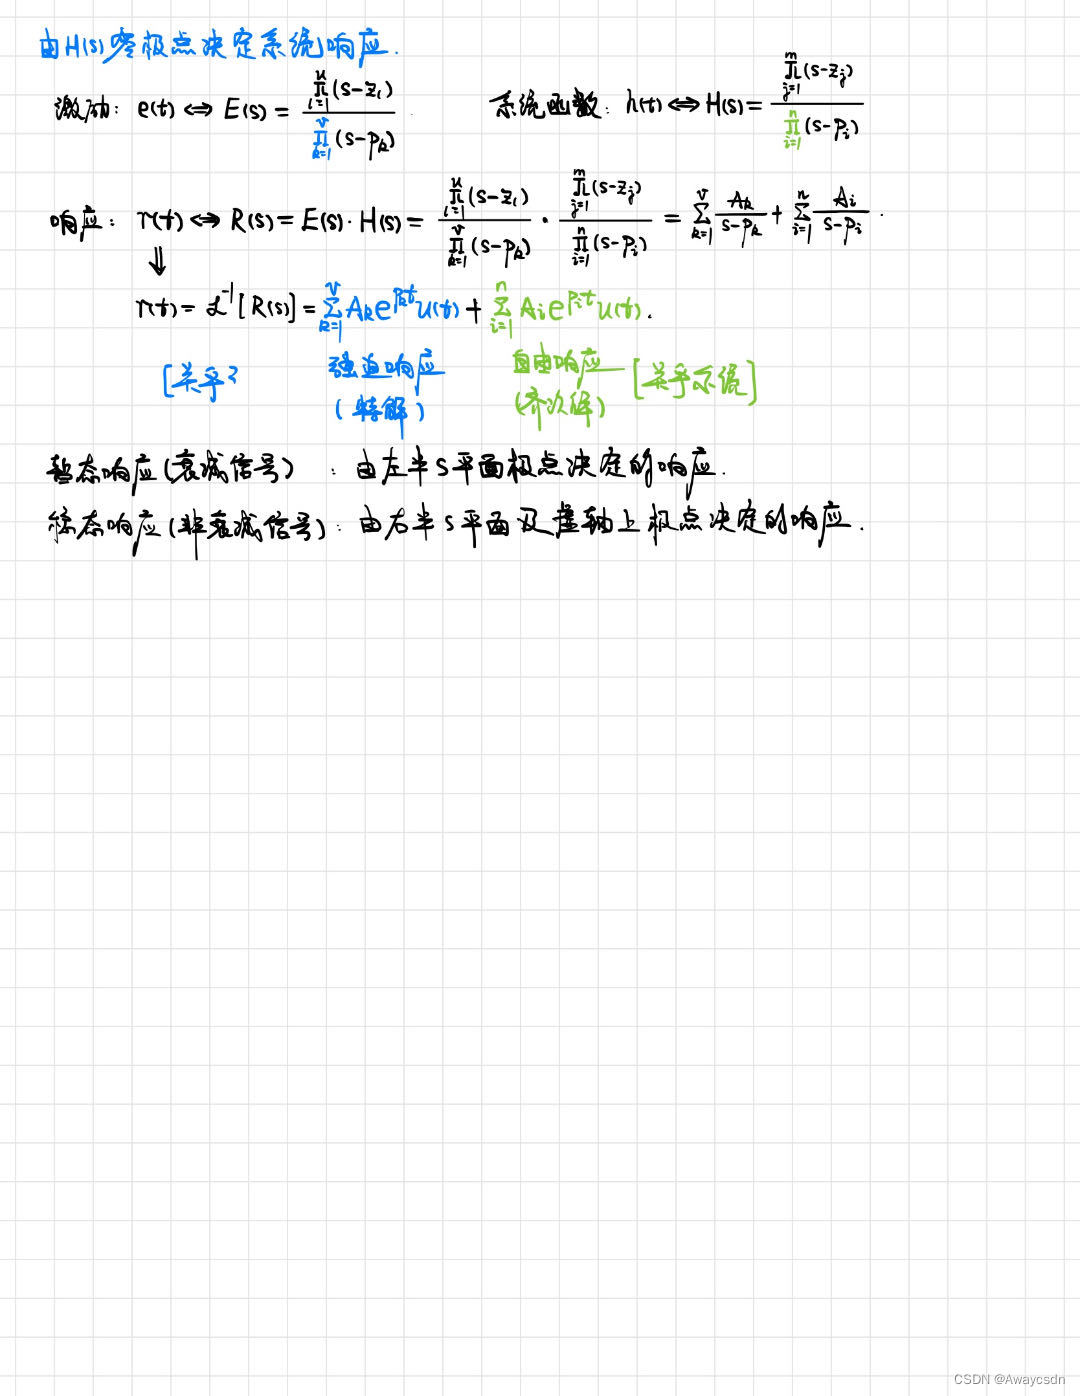 由H(s)零极点决定系统响应.
激励: e(t) ⇔ E(s) = \frac{\prod_{l=1}^{u}(s-z_l)}{\prod_{k=1}^{v}(s-p_k)} 系统函数: h(t) ⇔ H(s) = \frac{\prod_{j=1}^{m}(s-z_j)}{\prod_{i=1}^{n}(s-p_i)}
响应: r(t) ⇔ R(s) = E(s)·H(s) = \frac{\prod_{l=1}^{u}(s-z_l)}{\prod_{k=1}^{v}(s-p_k)} · \frac{\prod_{j=1}^{m}(s-z_j)}{\prod_{i=1}^{n}(s-p_i)} = \sum_{k=1}^{v}\frac{A_k}{s-p_k} + \sum_{i=1}^{n}\frac{A_i}{s-p_i}.
⇓
r(t) = ℒ^{-1}[R(s)] = \sum_{k=1}^{v}A_k e^{p_k t}u(t) + \sum_{i=1}^{n}A_i e^{p_i t}u(t).
[关乎 强迫响应 自由响应 [关乎系统]
(特解) (齐次解)
暂态响应(衰减信号) : 由左半S平面极点决定的响应.
稳态响应(非衰减信号): 由右半S平面及虚轴上极点决定的响应.
CSDN @Awaycsdn